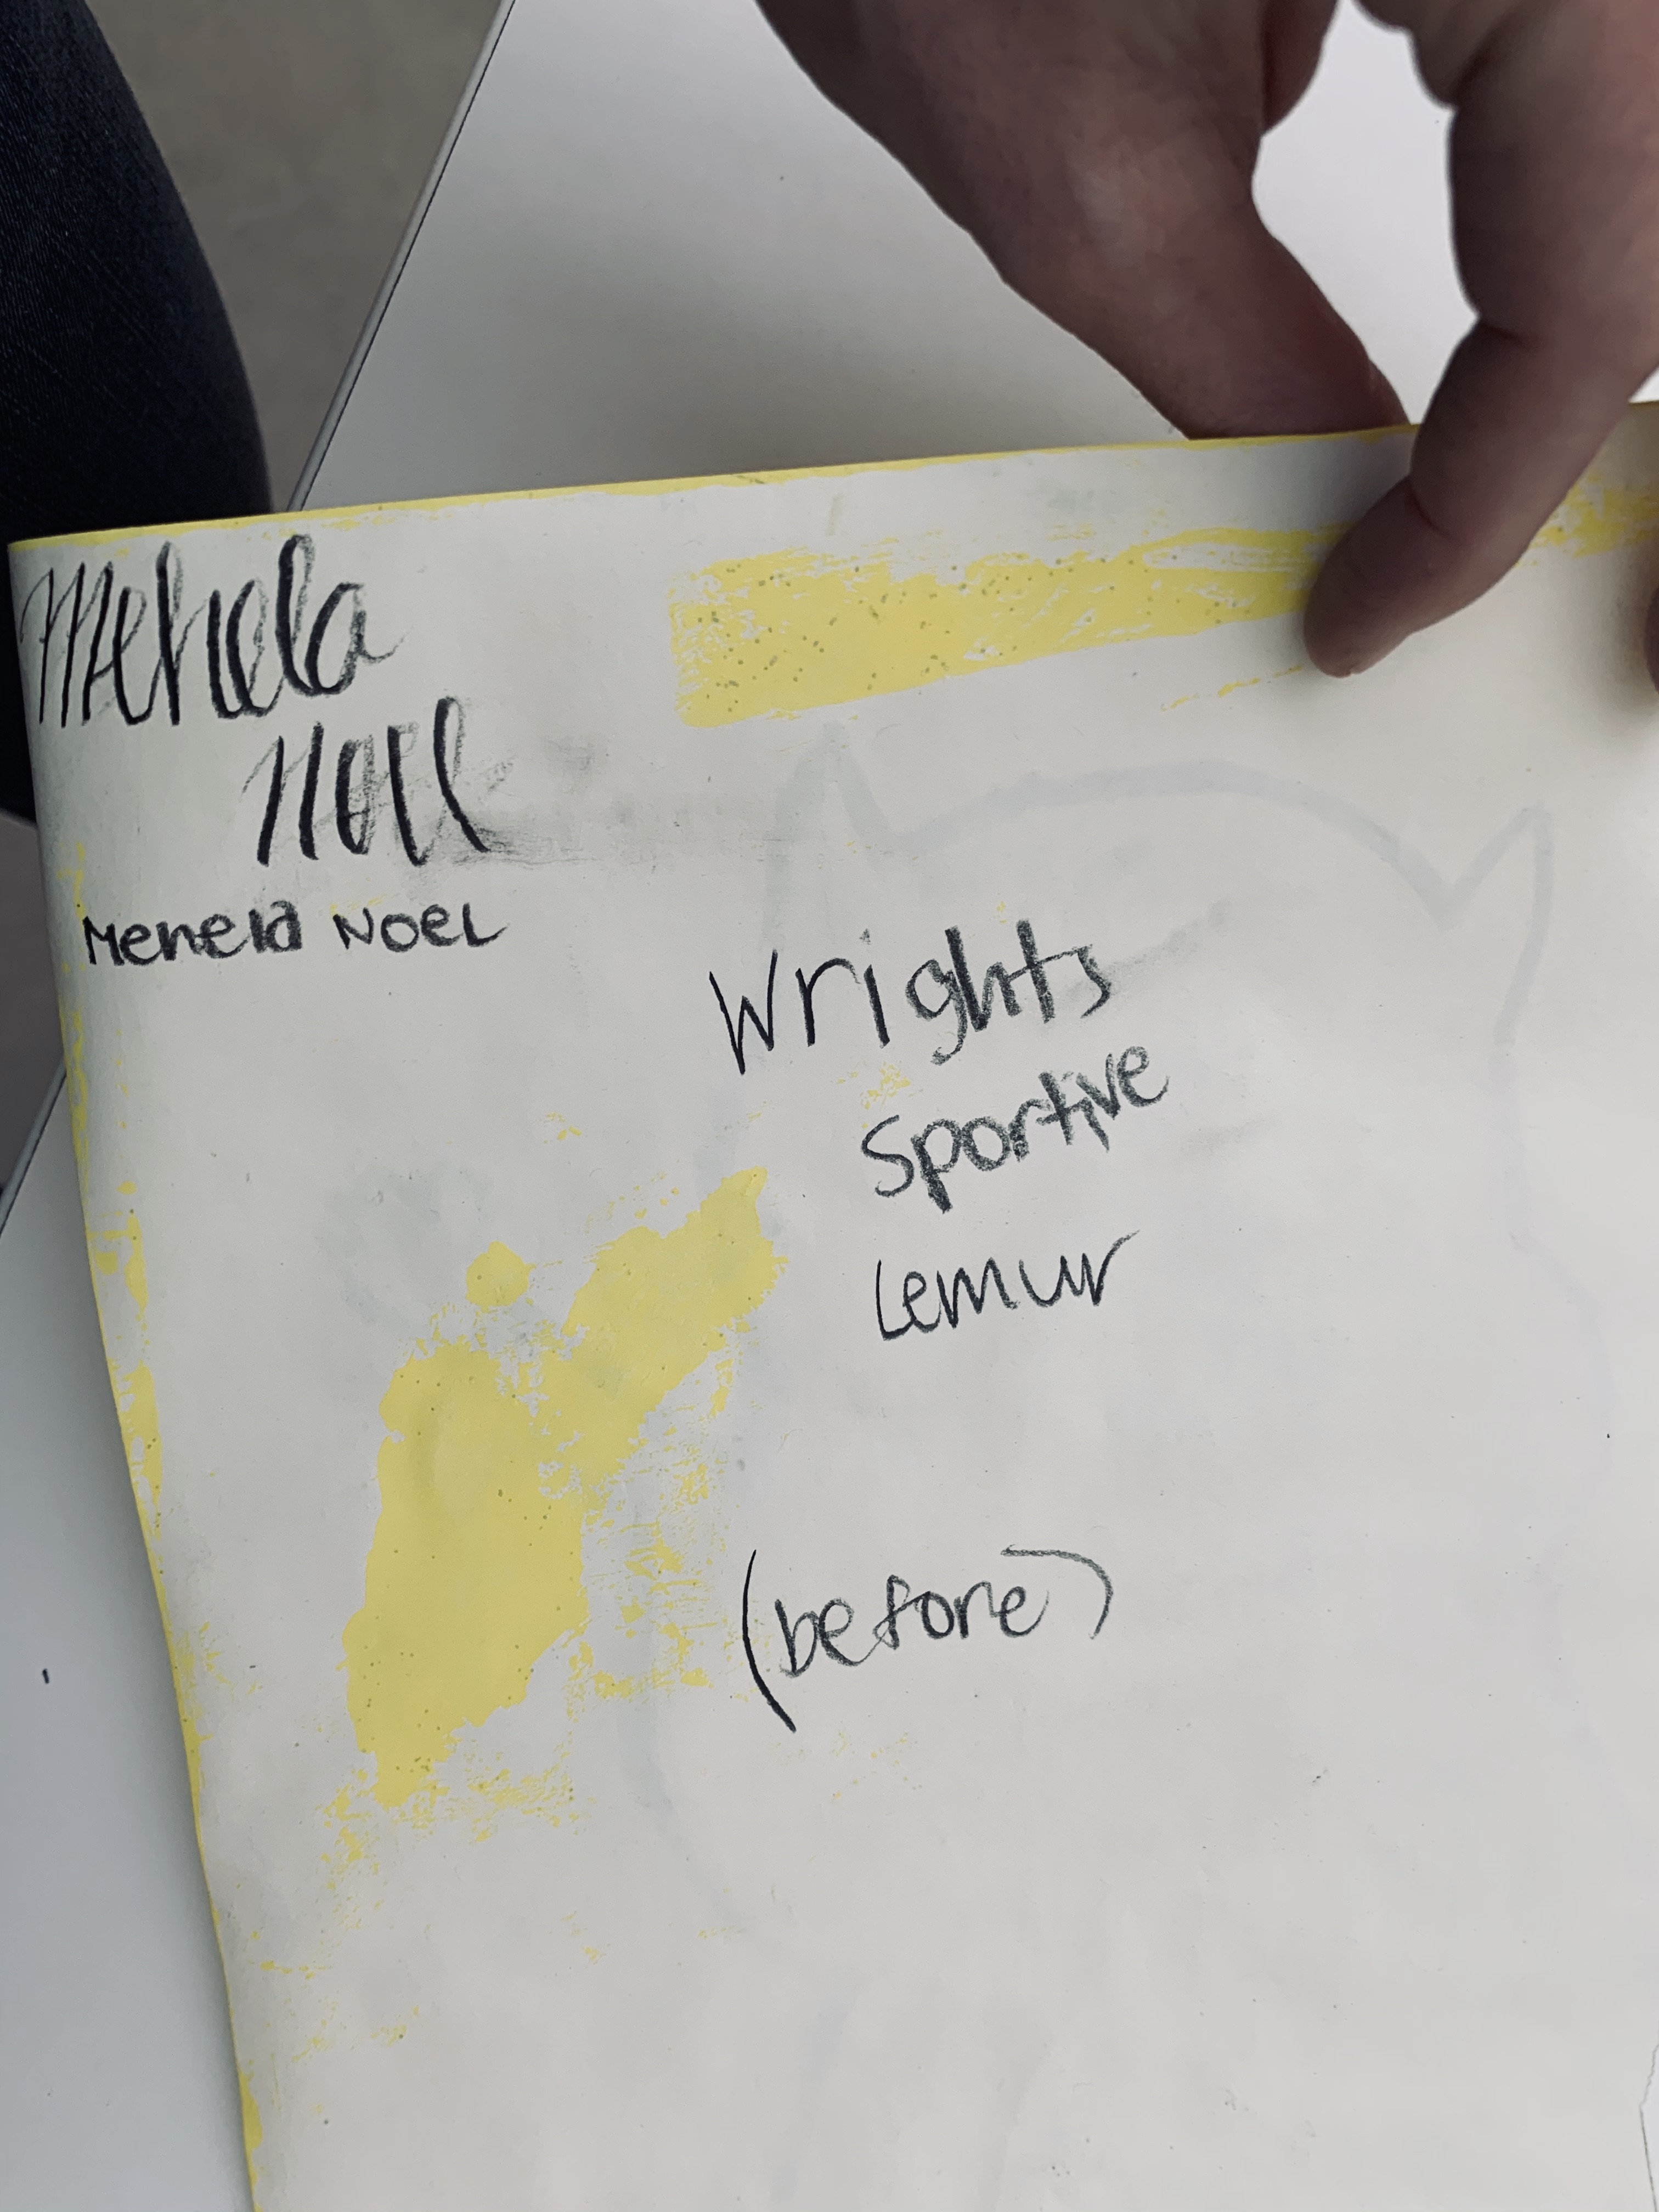 Mehela
Noel
Menela NOEL
Wrights
Sportive
Lemur
(before)